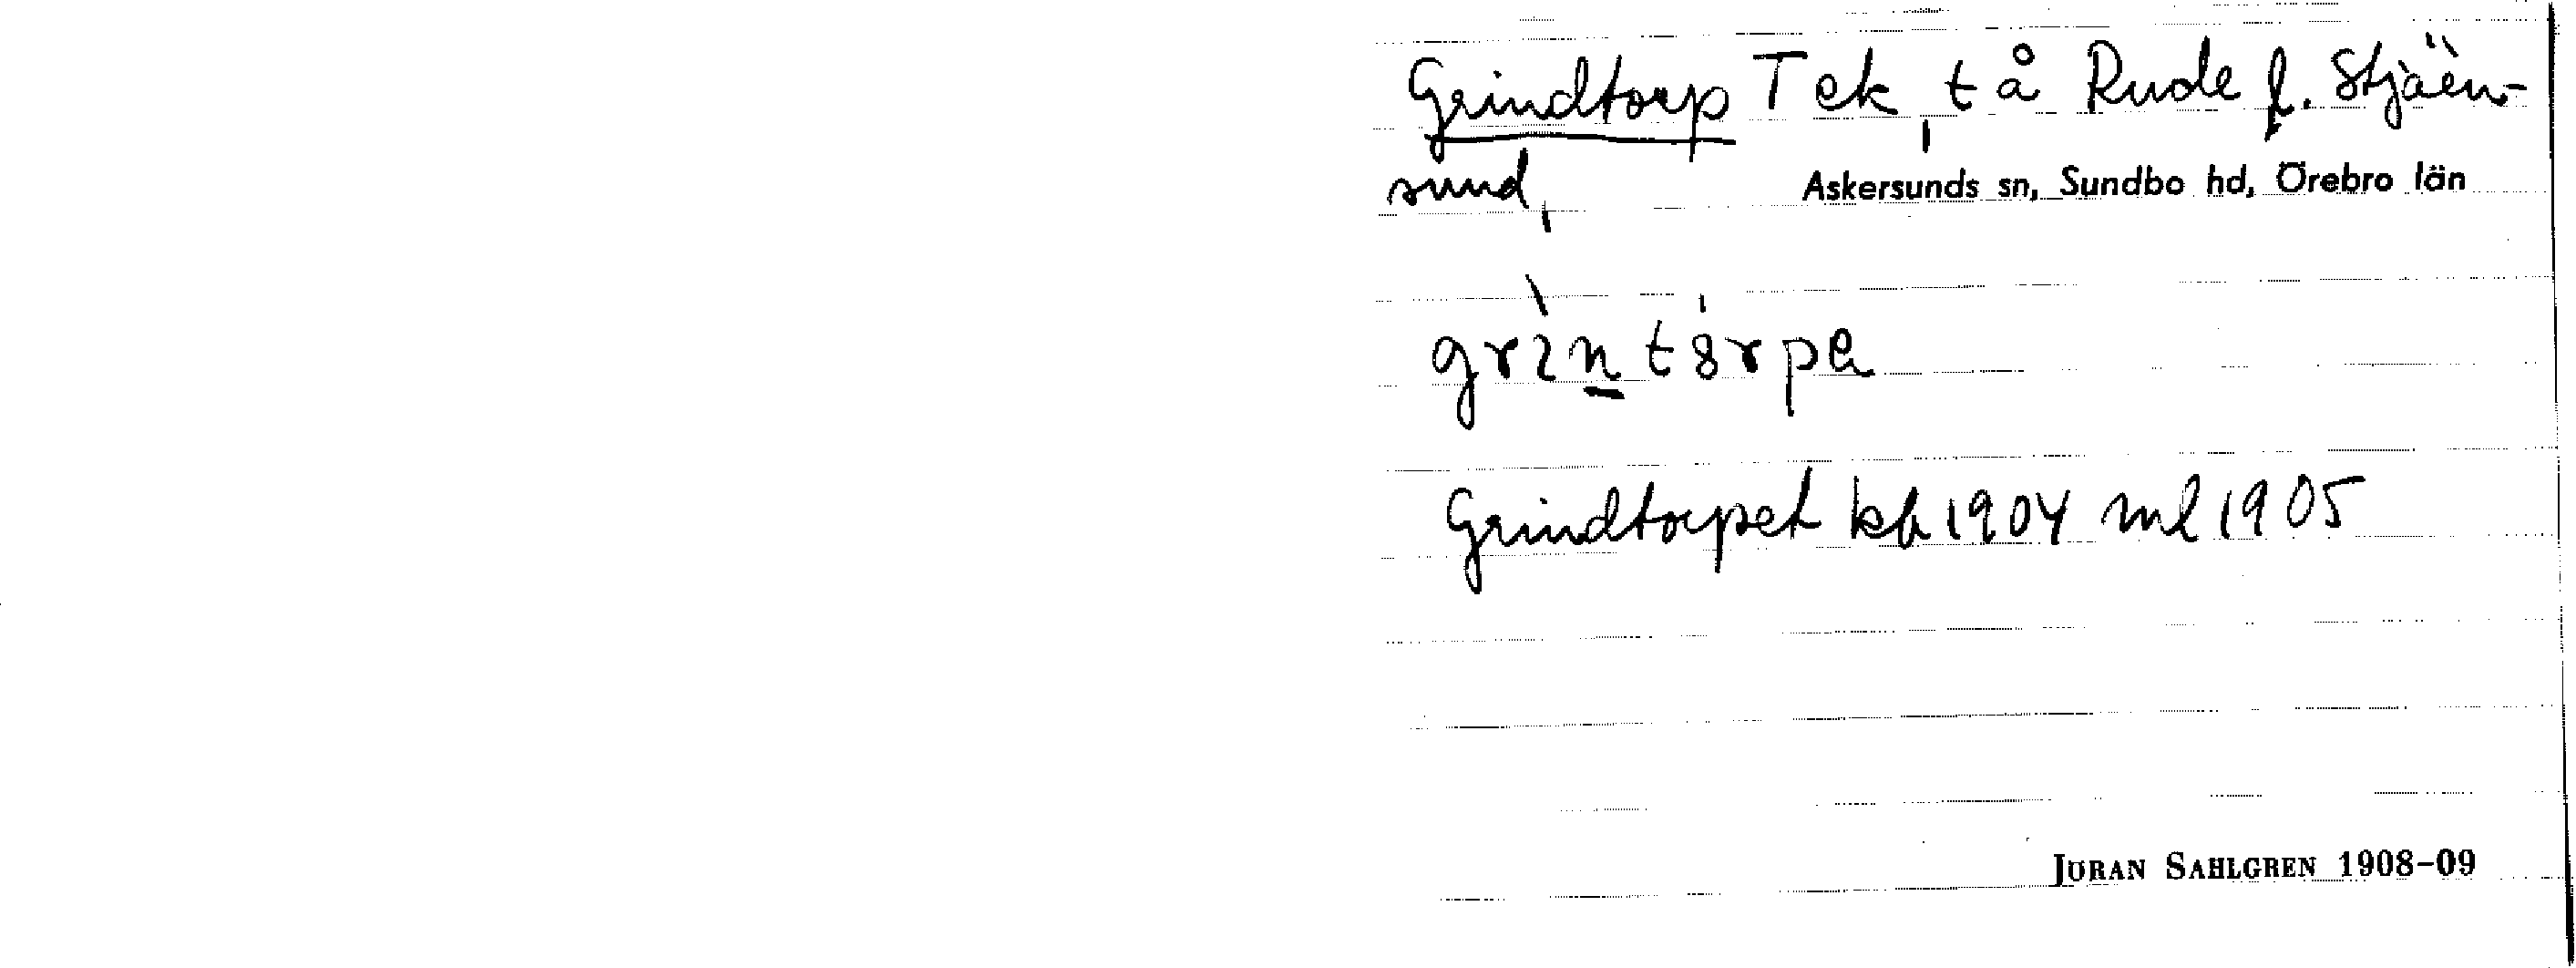 Grindtorp T ek, t å Rude f. Stjärn-
sund, Askersunds sn, Sundbo hd, Örebro län
grìntȣrpa
Grindtorpet kb 1904 ml 1905
JÖRAN SAHLGREN 1908-09